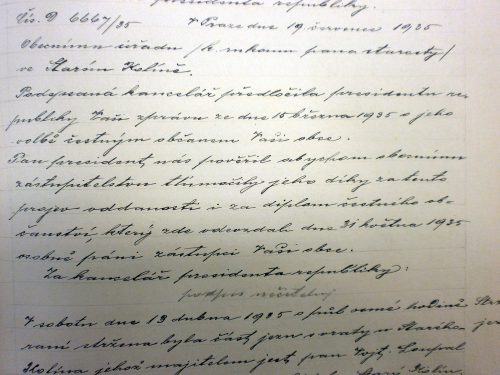 presidenta republiky.
Čís. D 6667/35 V Praze dne 19. července 1935
Obecnímu úřadu /k rukoum pana starosty/
ve Starém Kolíně.
Podepsaná kancelář předložila presidentu re-
publiky Vaši zprávu ze dne 15 března 1935 o jeho
volbě čestným občanem Vaší obce.
Pan president nás pověřil abychom obecnímu
zastupitelstvu tlumočily jeho díky za tento
projev oddanosti i za diplom čestného ob-
čanství, který zde odevzdal dne 31 května 1935
osobně páni zástupci Vaší obce.
Za kancelář presidenta republiky:
podpis nečitelný
V sobotu dne 13 dubna 1935 o půl osmé hodině
raní stržena byla část jezu u Starého
Kolína jehož majitelem jest pan Vojt.